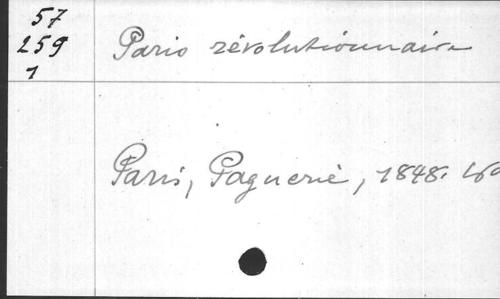 57
259
1
Paris révolutionnaire
Paris, Pagnerre, 1848. 16°